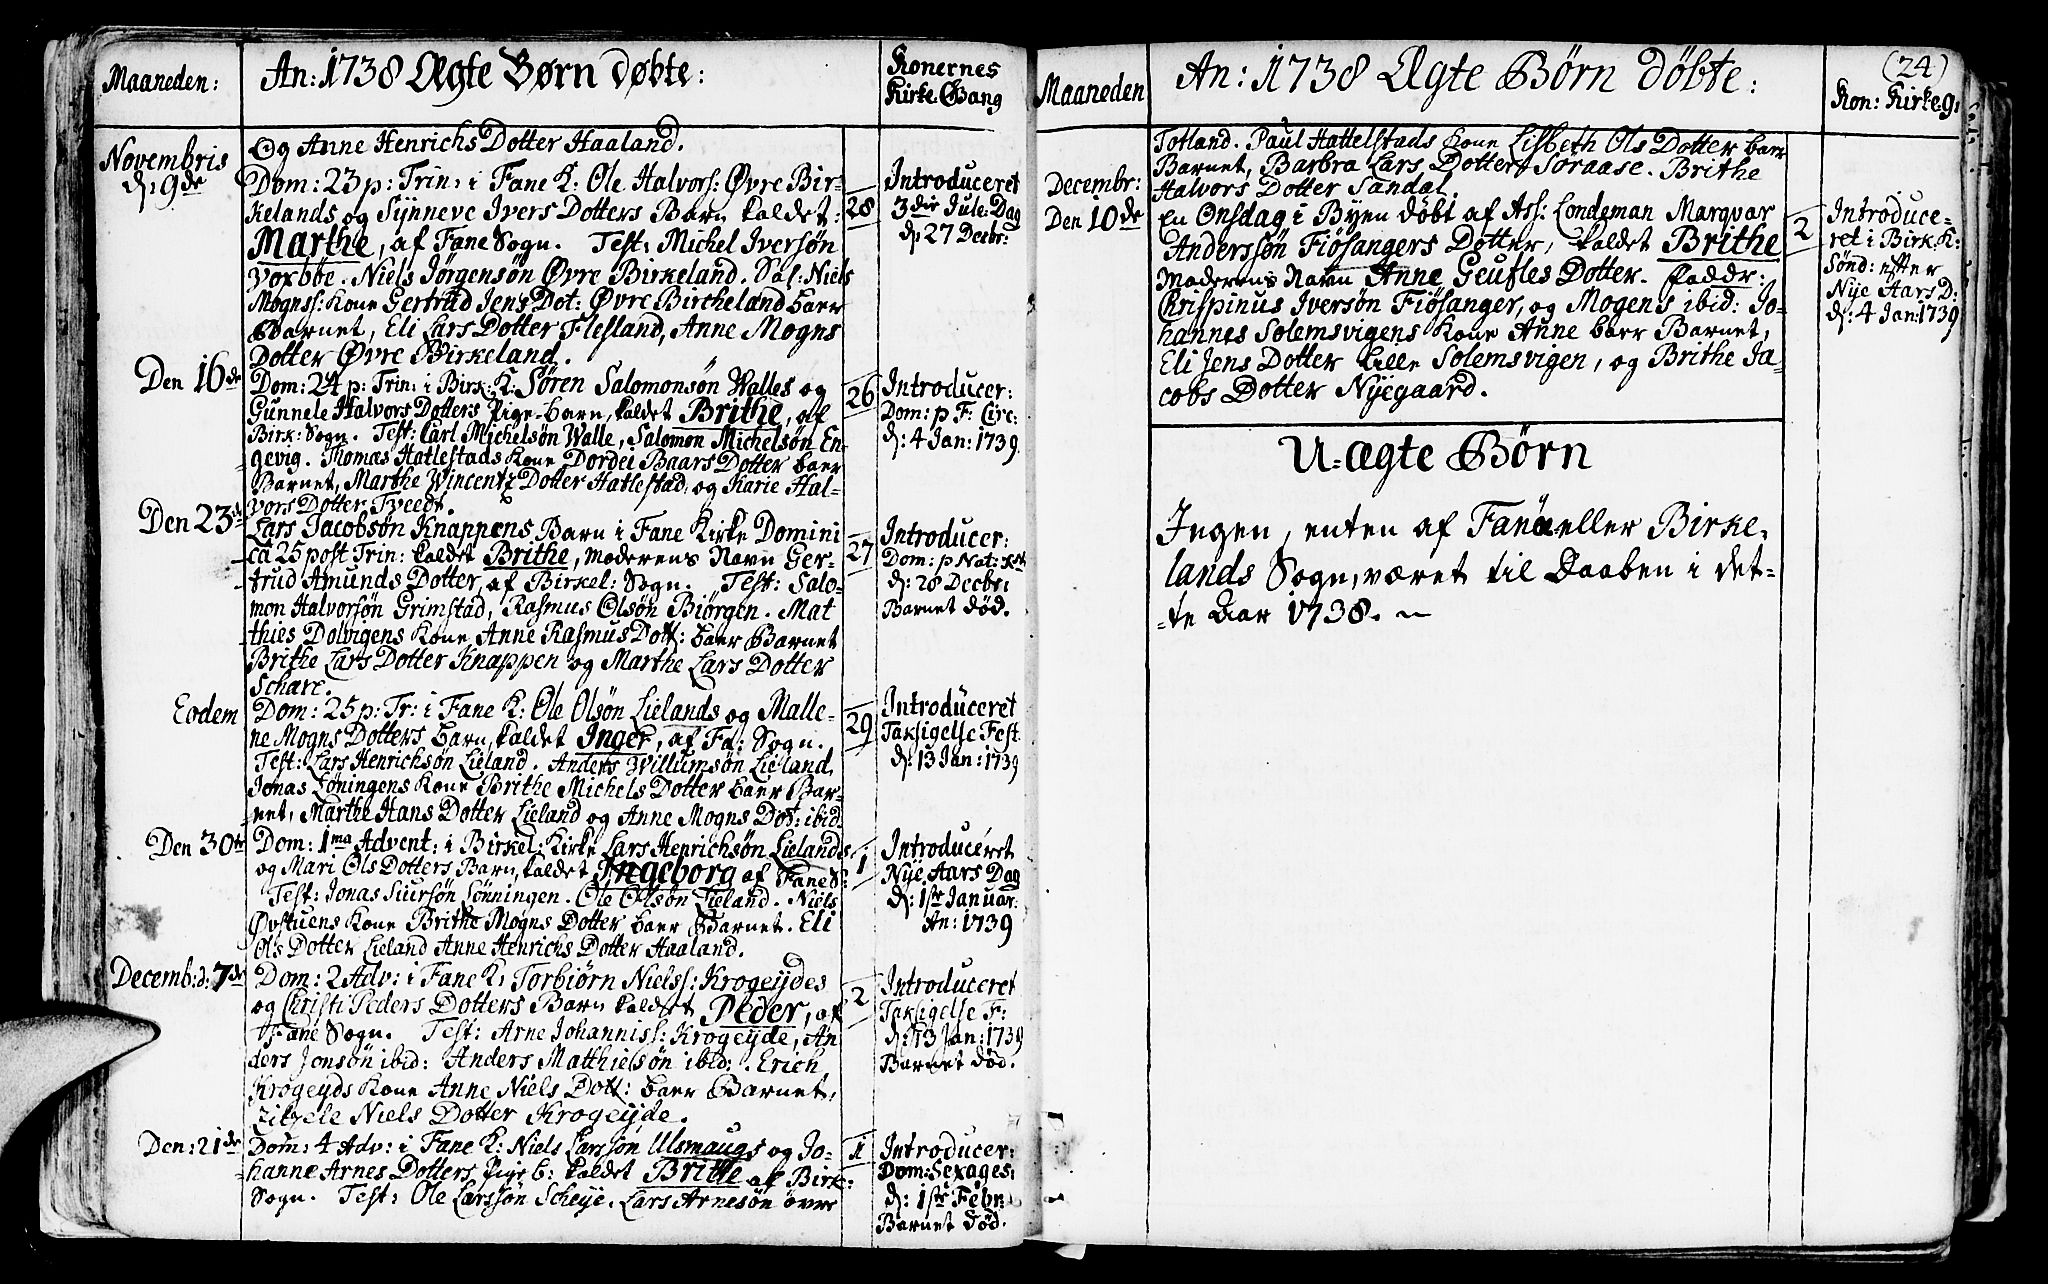 Maaneden:
An: 1738 Ægte Børn døbte:
Konernes
Kirke Gang
Novembris
d: 9de
Og Anne Henrichs Dotter Haaland.
Dom: 23 p: Trin: i Fane K: Ole Halvors: Øvre Bir-
kelands og Synneve Ivers Dotters Barn kaldet:
Marthe, af Fane Sogn. Test: Michel Iversøn
Voxbbe. Niels Jørgensøn Øvre Birkeland. Sal: Niels
Mognss: Kone Gertrud Jens Dot: Øvre Bircheland baer
Barnet, Eli Lars Dotter Flesland, Anne Mogns
Dotter Øvre Birkeland.
28
Introduceret
3die Jule: Dag
d. 27 Decbr:
Den 16de
Dom: 24 p: Trin: i Birk: K: Søren Salomonsøn Walles og
Gunnele Halvors Dotters Pige-barn, kaldet Brithe, af
Birk: Sogn. Test: Carl Michelsøn Walle, Salomon Michelsøn En-
gevig. Thomas Hatlestads Kone Dordei Baars Dotter baer
Barnet, Marthe Wincentz Dotter Hatlestad, og Karie Hal-
vors Dotter Tveedt.
26
Introducer:
Dom: p F: Circ:
d: 4 Jan: 1739
Den 23de
Lars Jacobsøn Knappens Barn i Fane Kirke Domini
ca 25 post Trin: kaldet Brithe, moderens Navn Ger-
trud Amunds Dotter, af Birkel: Sogn. Test: Salo-
mon Halvorsøn Grimstad, Rasmus Olsøn Biørgen. Mat
thies Dolvigens Kone Anne Rasmus Dott: baer Barnet
Brithe Lars Dotter Knappen og Marthe Lars Dotter
Schare.
27
Introducer:
Dom: p Nat: Xsti
d: 28 Decbr:
Barnet død.
Eodem
Dom: 25 p: Tr: i Fane K: Ole Olsøn Lielands og Malle-
ne Mogns Dotters barn, kaldet Inger, af Fa: Sogn.
Test: Lars Henrichsøn Lieland. Anders Willumsøn Lieland,
Jonas Søningens Kone Brithe Michels Dotter baer Bar-
net, Marthe Hans Dotter Lieland og Anne Mogns Dot: ibid.
29
Introduceret
Taksigelse Fest.
d: 13 Jan: 1739
Den 30te
Dom: 1ma Advent: i Birkel: Kirke Lars Henrichsøn Lielands
og Mari Ols Dotters Barn, kaldet Ingeborg af Fane S:
Test: Jonas Siursøn Sønningen. Ole Olsøn Lieland. Niels
Øvstuens Kone Brithe Mogns Dotter baer Barnet. Eli
Ols Dotter Lieland Anne Henrichs Dotter Haaland.
1
Introduceret
Nye Aars Dag
d: 1ste Januar:
An: 1739
Decemb: d: 7de
Dom: 2 Adv: i Fane K: Torbiørn Nielss: Krogeydes
og Christi Peders Dotters Barn kaldet Peder, af
Fane Sogn. Test: Arne Johanniss: Krogeyde, An
ders Jonsøn ibid: Anders Matthiesøn ibid: . Erich
Krogeyds Kone Anne Niels Dott: baer Barnet,
Zitzele Niels Dotter Krogeyde.
2
Introduceret
Taksigelse F:
d: 13 Jan: 1739
Barnet død.
Den: 21de
Dom: 4 Adv: i Fane K: Niels Larssøn Ulsmaugs og Jo-
hanne Arnes Dotters Pige b: kaldet Brithe af Birk:
Sogn. Test: Ole Larssøn Scheije. Lars Arnesøn övre
1
Introducer:
Dom: Sexages:
d: 1ste Febr:
Barnet død.
Maaneden
An: 1738 Ægte Børn døbte:
(24)
Kon: Kirkeg:
Totland. Paul Hattelstads Kone Lisbeth Ols Dotter baer
Barnet, Barbra Lars Dotter Soraase. Brithe
Halvors Dotter Sandal.
Decembr:
Den 10de
en Onsdag i Byen døbt af Ass: Londeman Marqvar
Anderssøn Fiösangers Dotter, kaldet Brithe
Moderens Navn Anne Geufles Dotter. Faddr:
Chrispinus Iversøn Fiösanger, og Mogens ibid: Jo-
hannes Solemsvigens Kone Anne baer Barnet,
Eli Jens Dotter Lille Solemsvigen, og Brithe Ja-
cobs Dotter Nyegaard.
2
Introduce-
ret i Birk: K:
Sönd: efter
Nye Aars D:
d: 4 Jan: 1739
U=ægte Børn
Ingen, enten af Fanöe eller Birke-
lands Sogn, været til Daaben i det-
te Aar 1738.